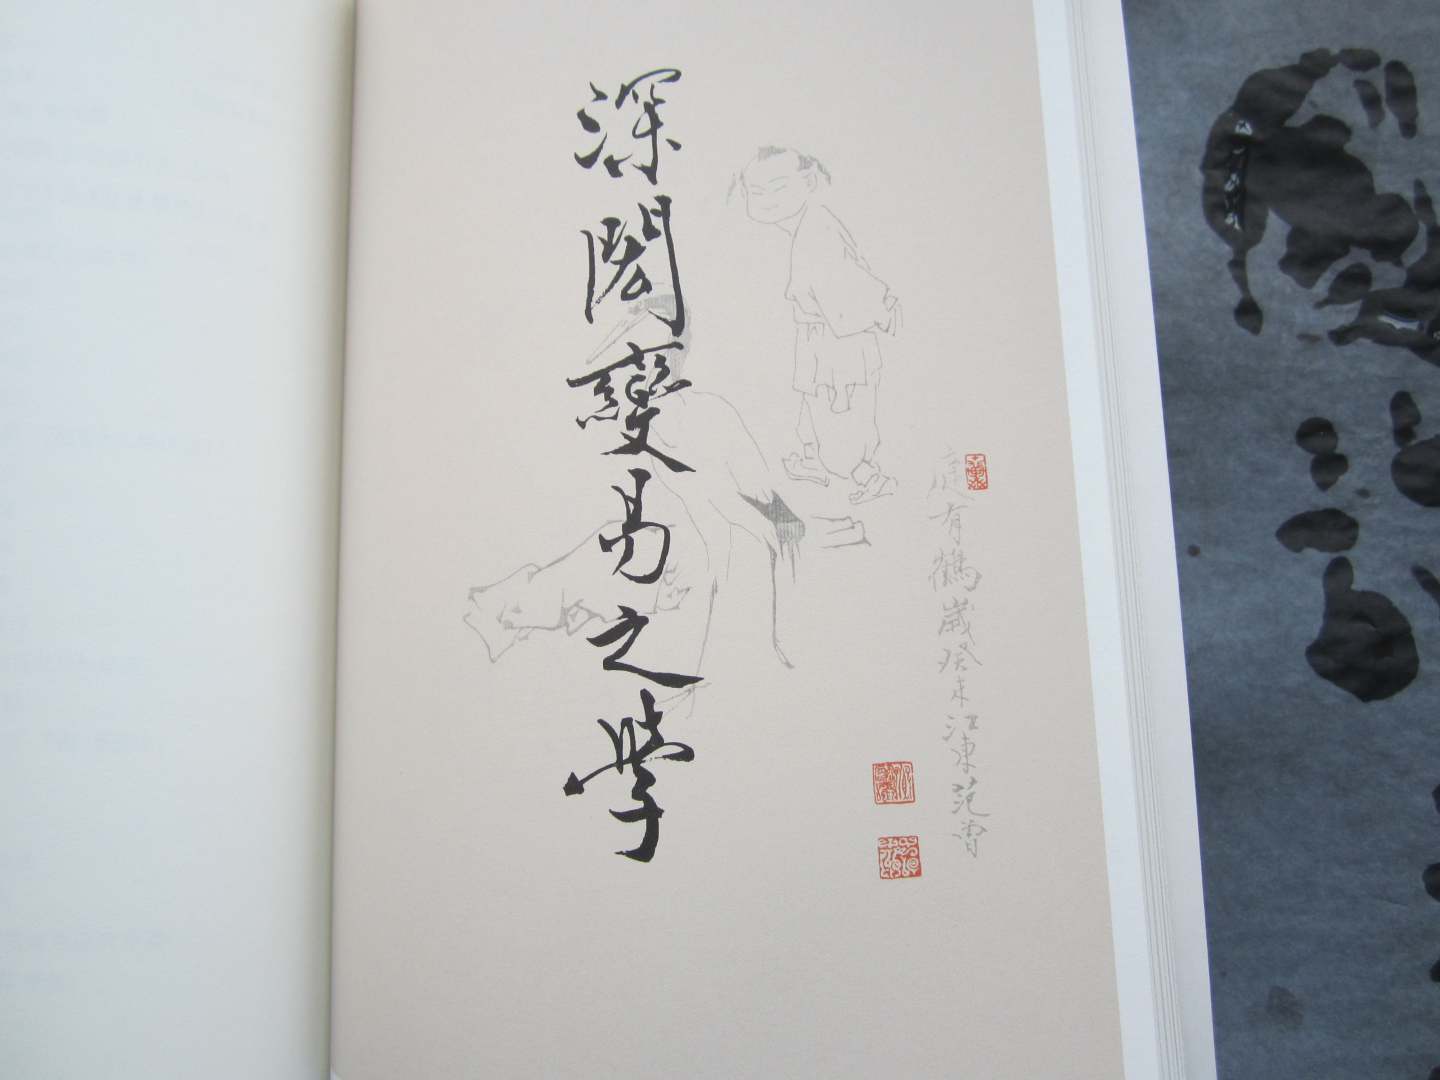 深閎變易之學
庭有鶴歲癸未江東范曾